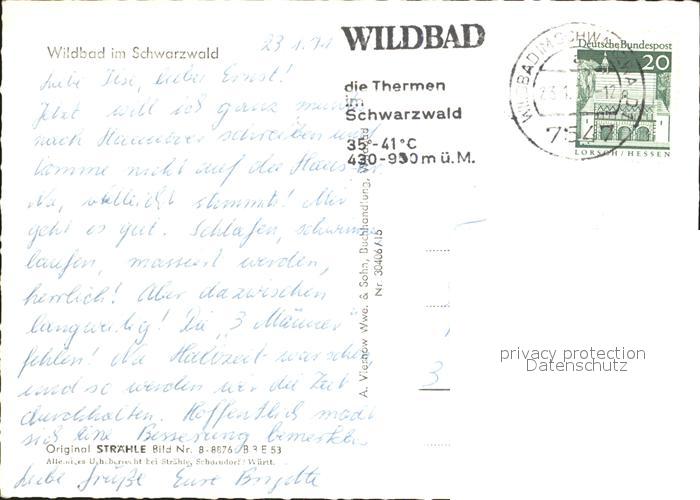 Wildbad im Schwarzwald
23.1.71
WILDBAD
die Thermen
im
Schwarzwald
35°-41°C
430-930 m ü.M.
WILDBAD IM SCHWARZWALD
7547
Deutsche Bundespost
20
LORSCH/HESSEN
Liebe Ilse, lieber Ernst!
Jetzt will ich ganz
nach Hannover schreiben und
komme nicht auf die
Na, vielleicht stimmts! Mir
geht es gut. Schlafen, schwimmen
laufen, massiert werden,
herrlich! Aber dazwischen
langweilig! Die "3 Männer"
fehlen! Na Halbzeit war schon
und so werden wir die Zeit
durchhalten. Hoffentlich macht
sich eine Besserung bemerkbar
Liebe Grüße Eure Brigitte
Original STRÄHLE Bild Nr. 8-8876 / B R E 53
Alleiniges Urheberrecht bei Strähle, Schorndorf / Württ.
A. Viegnow Wwe. & Sohn, Buchhandlung,
Nr. 30406/15
3
privacy protection
Datenschutz